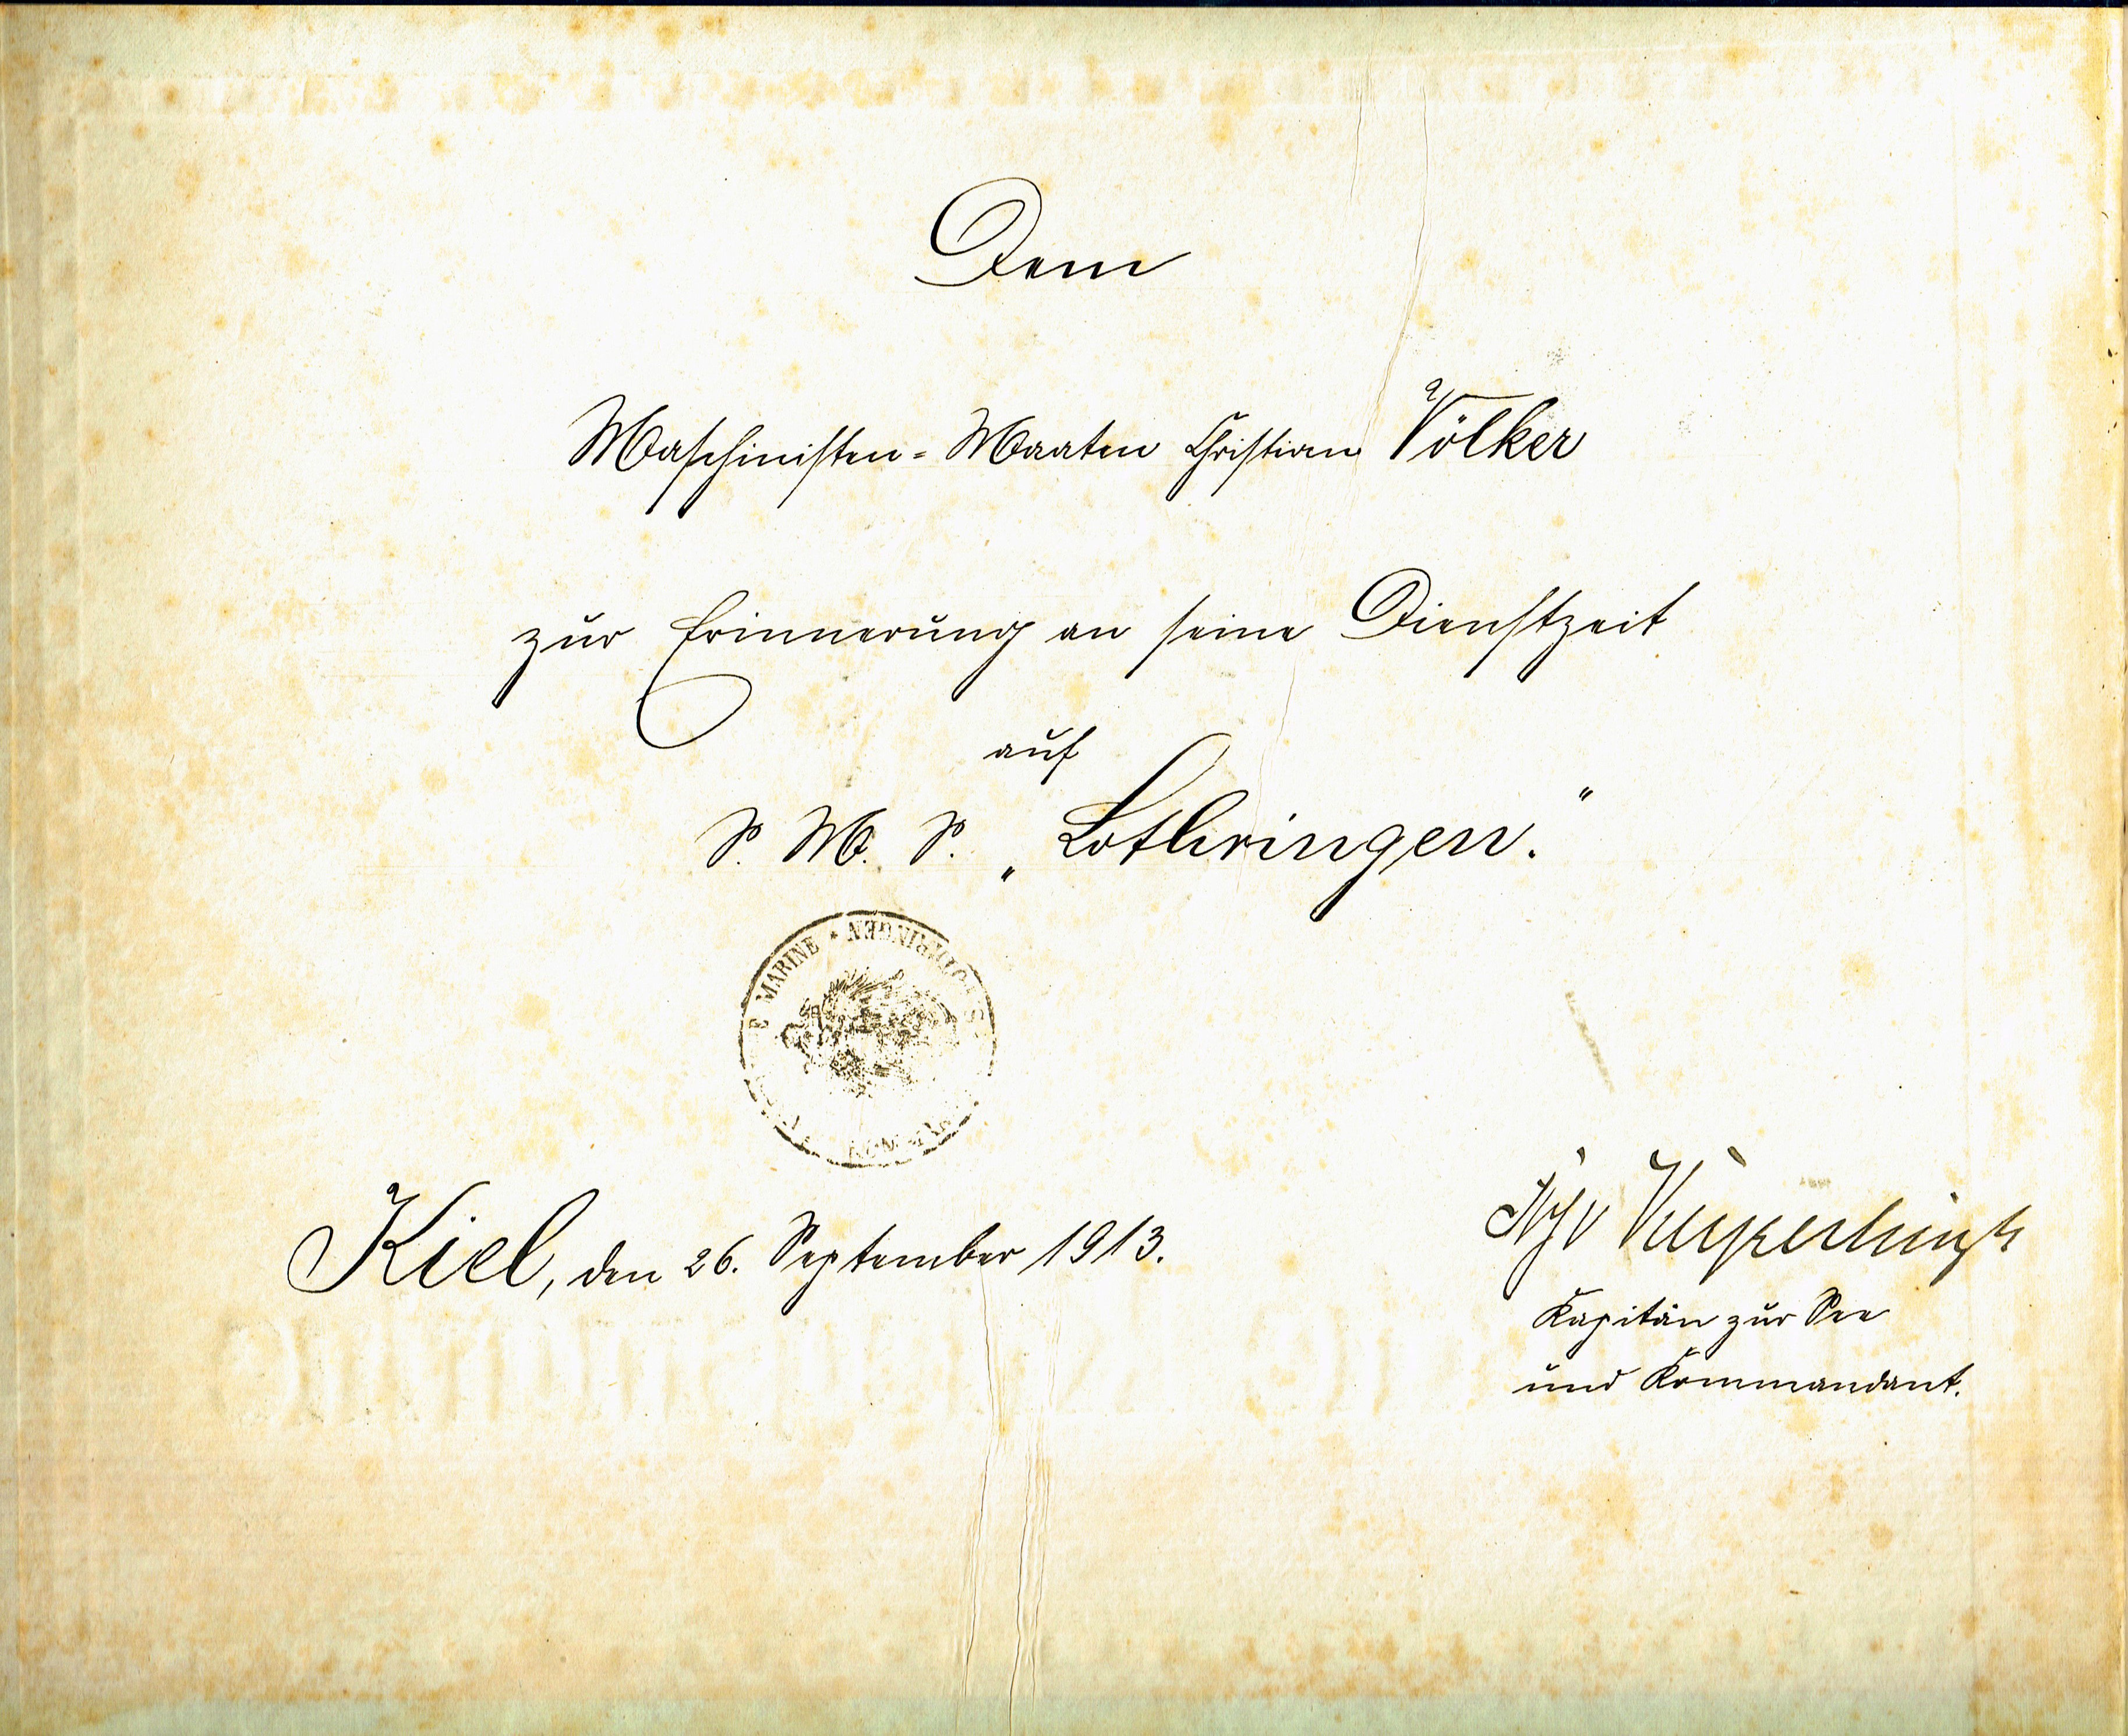 Dem
Maschinisten-Maaten Christian Völker
zur Erinnerung an seine Dienstzeit
auf
S. M. S. „Lothringen."
MARINE * S.M.S. LOTHRINGEN
Kiel, den 26. September 1913.
Kapitän zur See
und Kommandant.